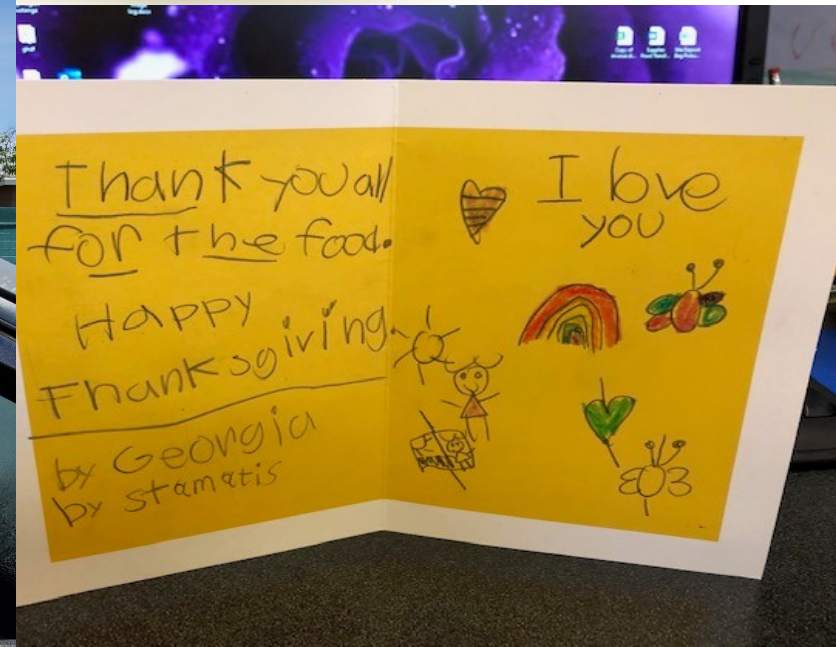 Thank you all
for the food.
Happy
Thanksgiving.
by Georgia
by Stamatis
I love
you